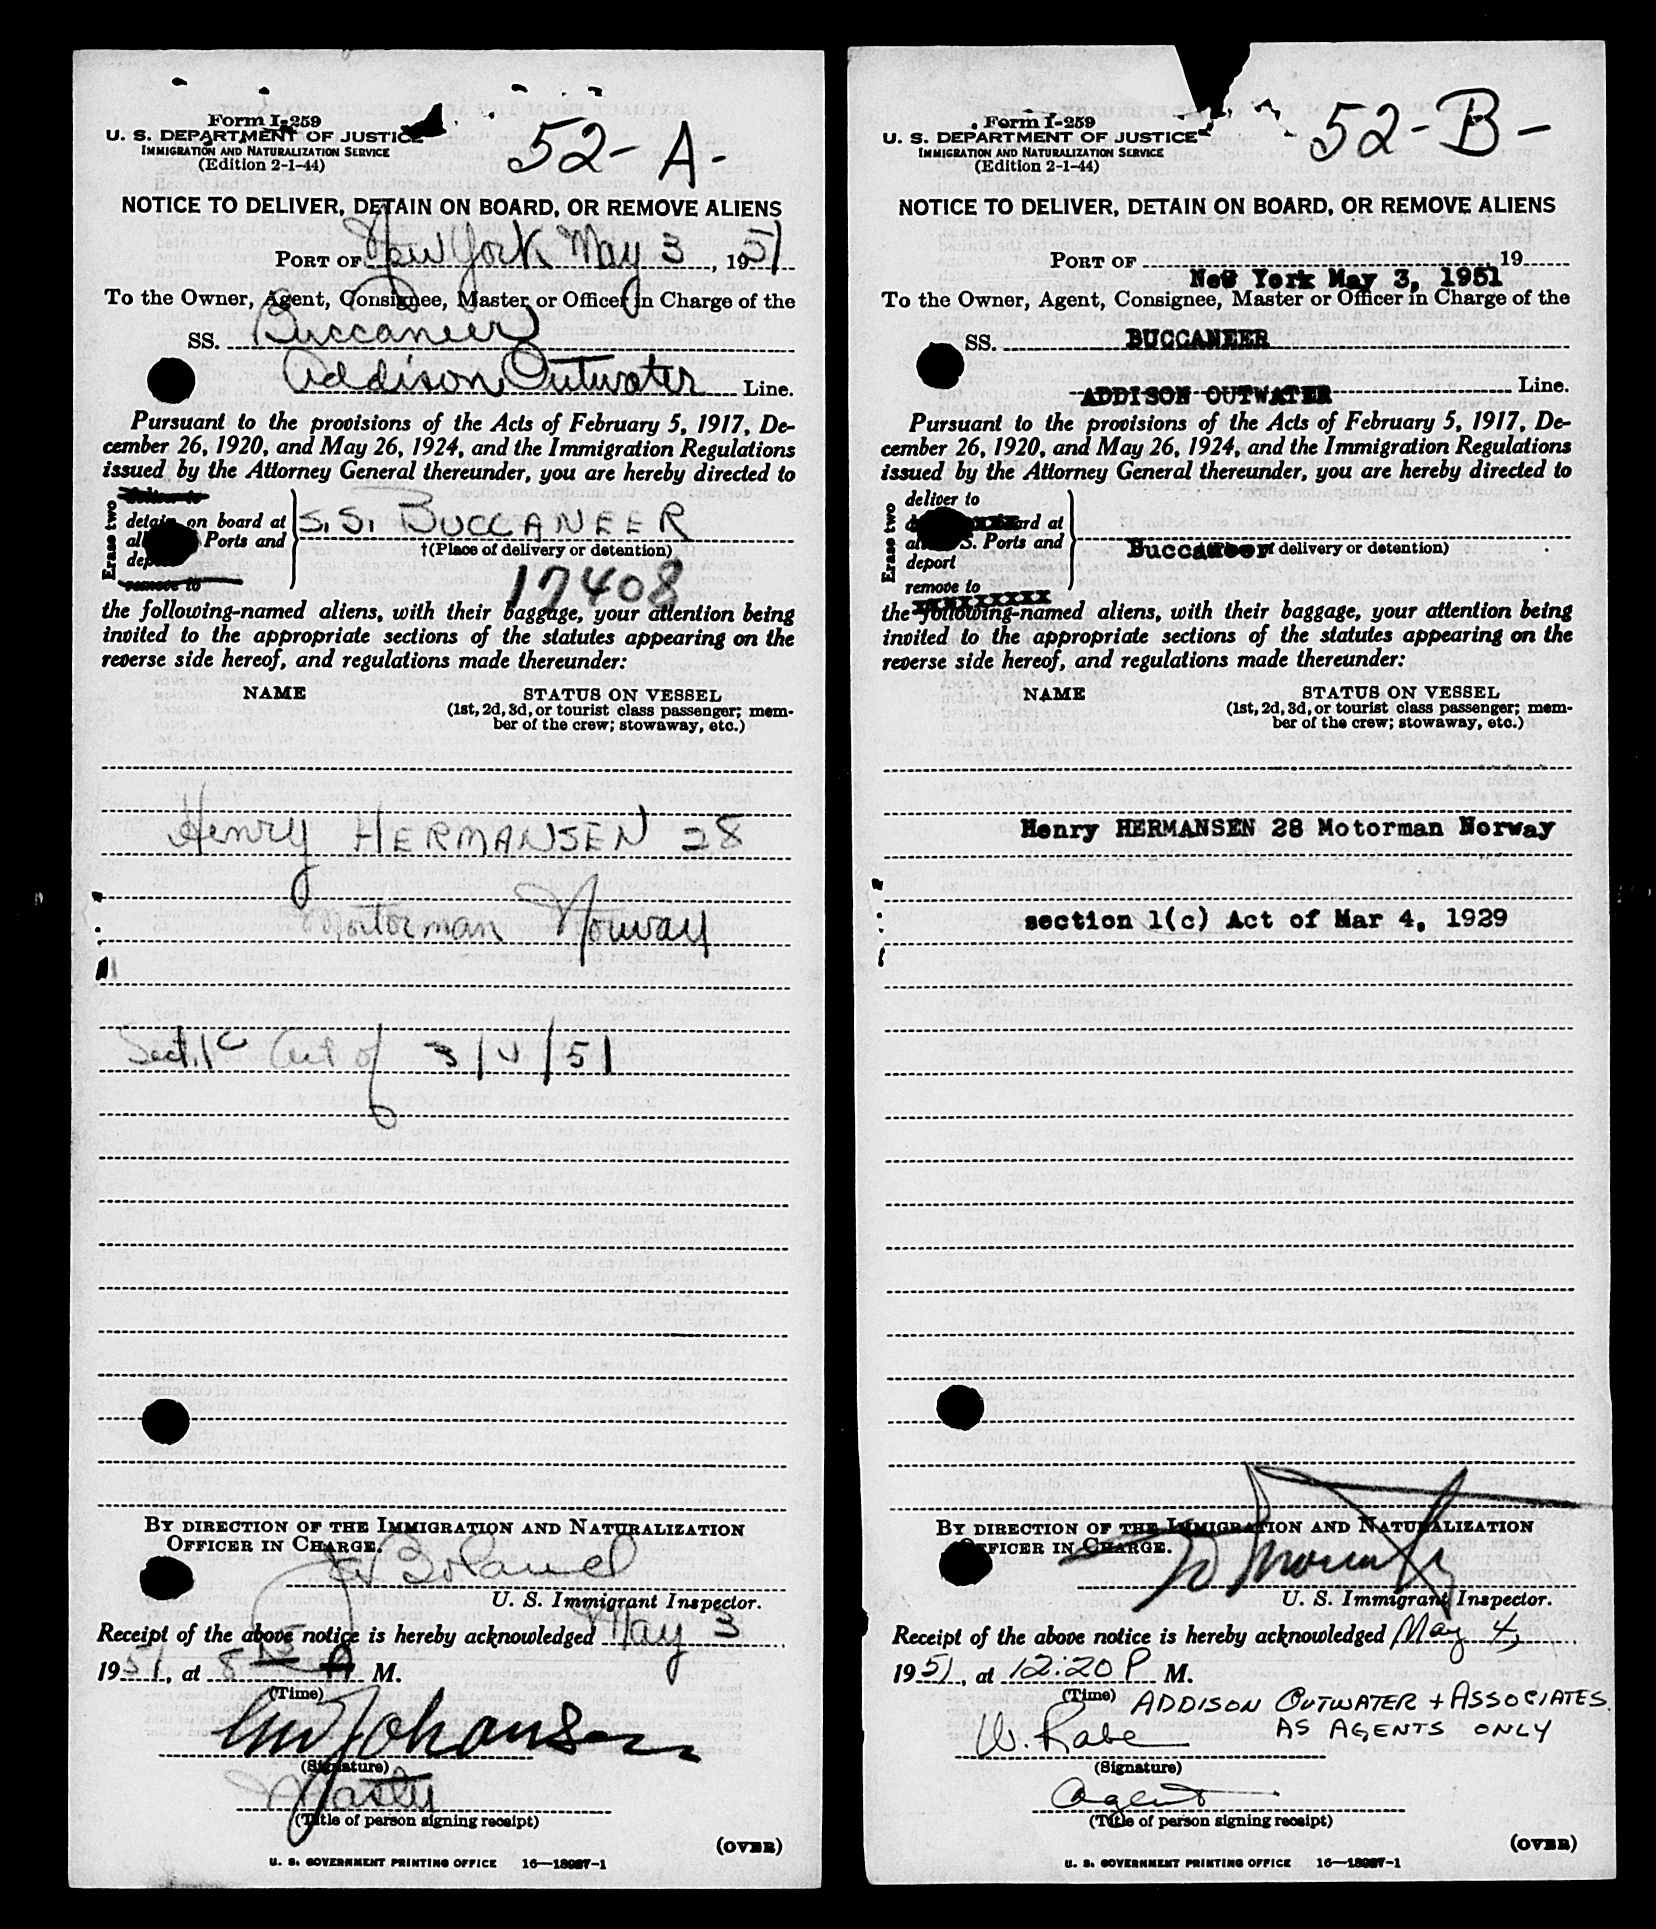 Form I-259
U. S. DEPARTMENT OF JUSTICE
IMMIGRATION AND NATURALIZATION SERVICE
(Edition 2-1-44)
52- A-
NOTICE TO DELIVER, DETAIN ON BOARD, OR REMOVE ALIENS
PORT OF New York May 3, 1951
To the Owner, Agent, Consignee, Master or Officer in Charge of the
SS. Buccaneer
Addison Outwater Line.
Pursuant to the provisions of the Acts of February 5, 1917, De-
cember 26, 1920, and May 26, 1924, and the Immigration Regulations
issued by the Attorney General thereunder, you are hereby directed to
Erase two
deliver to
detain on board at
Ports and
remove to
S.S. BUCCANEER
†(Place of delivery or detention)
17408
the following-named aliens, with their baggage, your attention being
invited to the appropriate sections of the statutes appearing on the
reverse side hereof, and regulations made thereunder:
NAME STATUS ON VESSEL
(1st, 2d, 3d, or tourist class passenger; mem-
ber of the crew; stowaway, etc.)
Henry HERMANSEN 28
Motorman Norway
Sect. 1c Act of 3/4/51
BY DIRECTION OF THE IMMIGRATION AND NATURALIZATION
OFFICER IN CHARGE.
Boland
U. S. Immigrant Inspector.
Receipt of the above notice is hereby acknowledged May 3
1951, at 8 M.
(Time)
Johansen
(Signature)
Master
(Title of person signing receipt)
(OVER)
U. S. GOVERNMENT PRINTING OFFICE 16—18987-1
Form I-259
U. S. DEPARTMENT OF JUSTICE
IMMIGRATION AND NATURALIZATION SERVICE
(Edition 2-1-44)
52-B-
NOTICE TO DELIVER, DETAIN ON BOARD, OR REMOVE ALIENS
PORT OF 19
New York May 3, 1951
To the Owner, Agent, Consignee, Master or Officer in Charge of the
SS. BUCCANEER
ADDISON OUTWATER Line.
Pursuant to the provisions of the Acts of February 5, 1917, De-
cember 26, 1920, and May 26, 1924, and the Immigration Regulations
issued by the Attorney General thereunder, you are hereby directed to
Erase two
deliver to
board at
S. Ports and
deport
remove to
xxxxxxxxx
Buccaneer
of delivery or detention)
the following-named aliens, with their baggage, your attention being
invited to the appropriate sections of the statutes appearing on the
reverse side hereof, and regulations made thereunder:
NAME STATUS ON VESSEL
(1st, 2d, 3d, or tourist class passenger; mem-
ber of the crew; stowaway, etc.)
Henry HERMANSEN 28 Motorman Norway
section 1(c) Act of Mar 4, 1929
BY DIRECTION OF THE IMMIGRATION AND NATURALIZATION
OFFICER IN CHARGE.
U. S. Immigrant Inspector.
Receipt of the above notice is hereby acknowledged May 4,
1951, at 12:20 P M.
(Time)
ADDISON OUTWATER + ASSOCIATES
AS AGENTS ONLY
W. Rabe
(Signature)
Agent
(Title of person signing receipt)
(OVER)
U. S. GOVERNMENT PRINTING OFFICE 16—18987-1